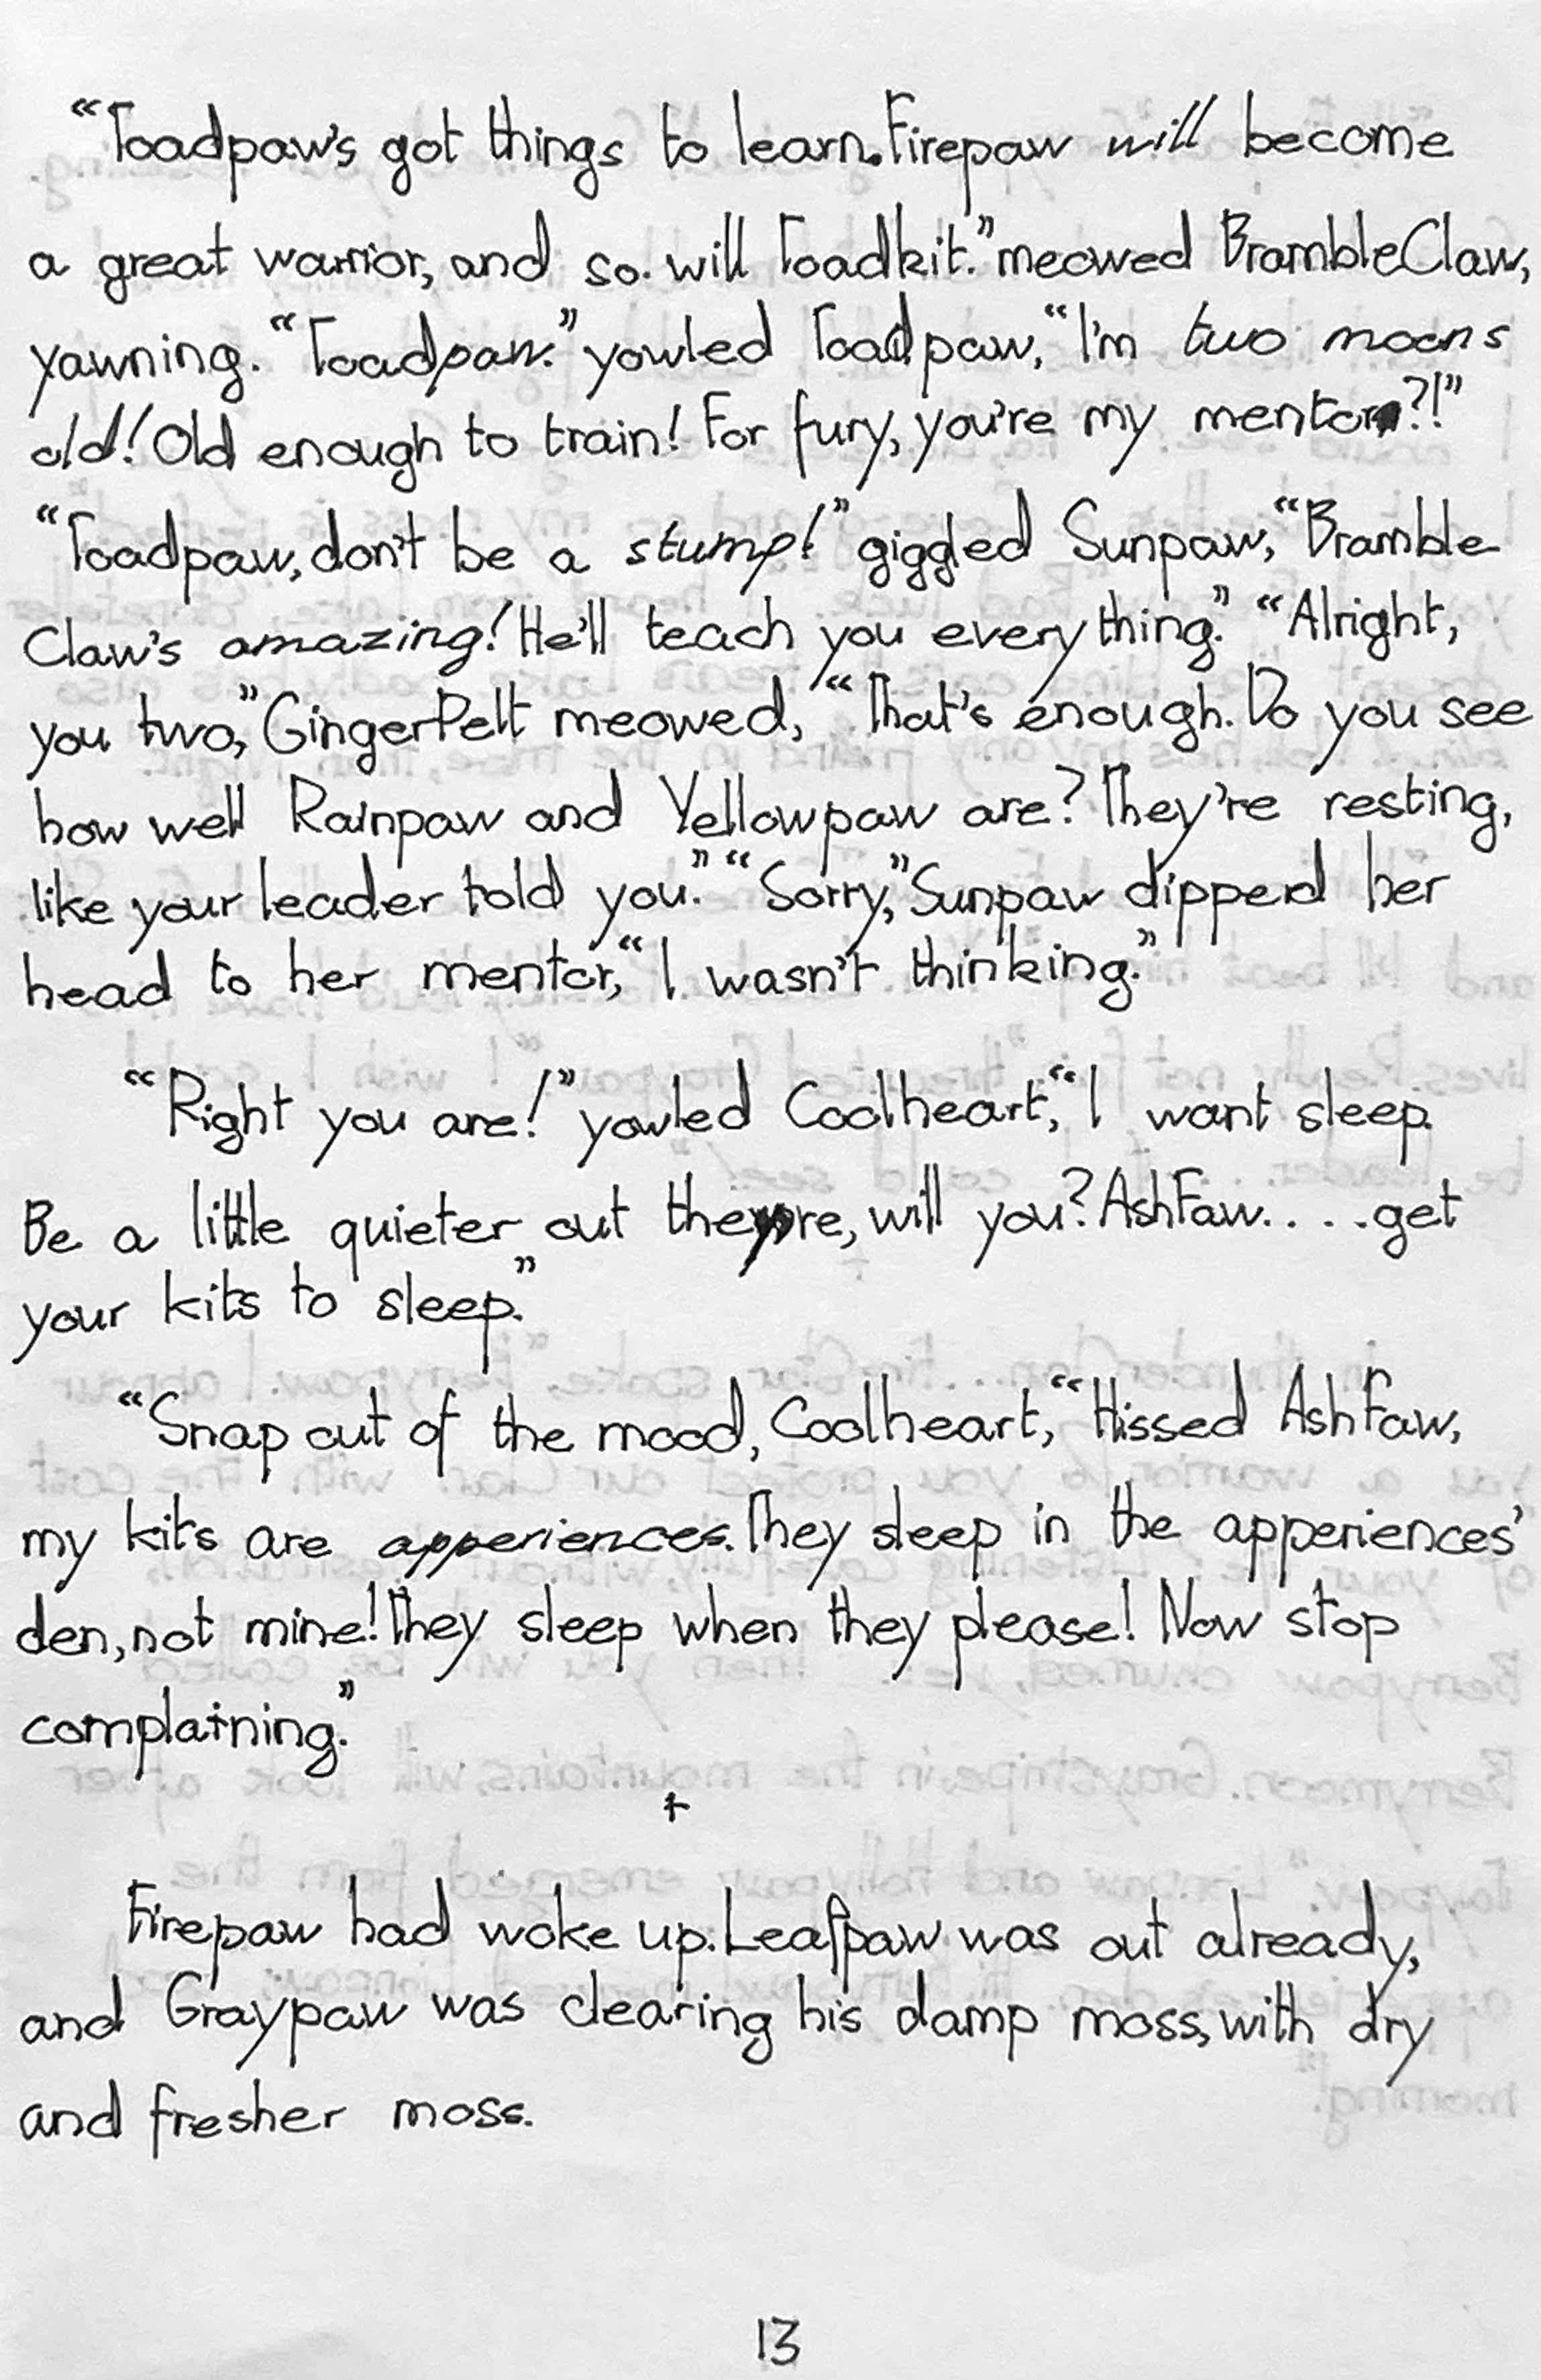 “Toadpaw's got things to learn. Firepaw will become
a great warrior, and so will Toadkit.” meowed BrambleClaw,
yawning. “Toadpaw.” yowled Toadpaw, “I'm two moons
old! Old enough to train! For fury, you're my mentor?!”
“Toadpaw, don't be a stump!” giggled Sunpaw, “Bramble
Claw's amazing! He'll teach you everything.” “Alright,
you two,” GingerPelt meowed, “That's enough. Do you see
how well Rainpaw and Yellowpaw are? They're resting,
like your leader told you.” “Sorry,” Sunpaw dipperd her
head to her mentor, “I wasn't thinking.”
“Right you are!” yowled Coolheart, “I want sleep.
Be a little quieter out there, will you? AshFaw.....get
your kits to sleep.”
“Snap out of the mood, Coolheart, “Hissed AshFaw,
my kits are apperiences. They sleep in the apperiences'
den, not mine! They sleep when they please! Now stop
complaining.”
+
Firepaw had woke up. Leafpaw was out already,
and Graypaw was clearing his damp moss, with dry
and fresher moss.
13